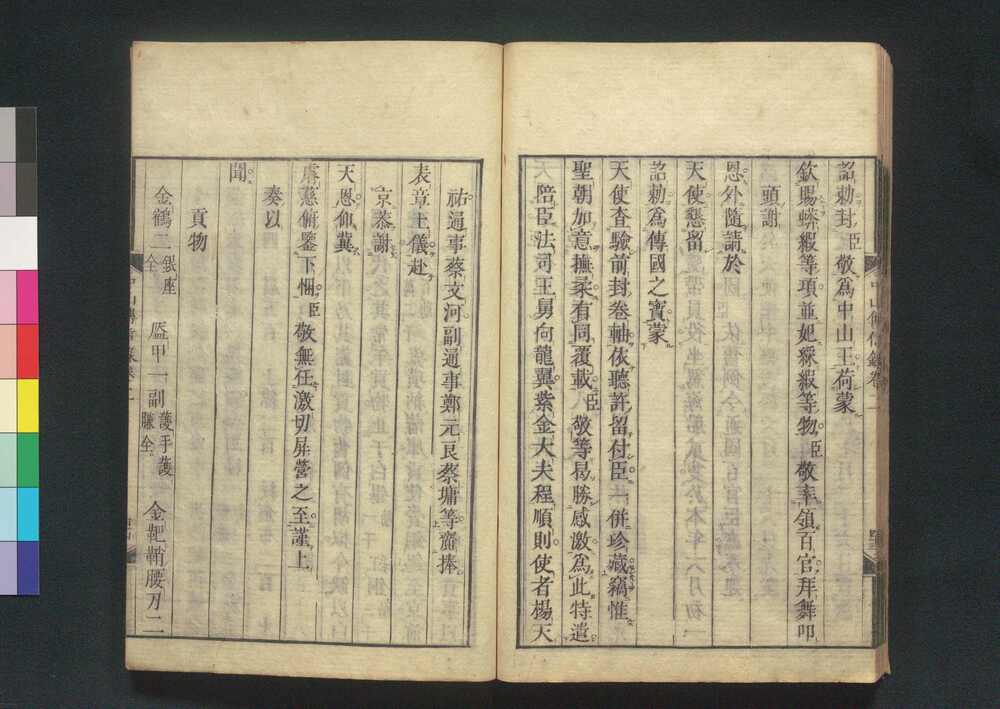 詔勅封臣敬爲中山王荷蒙
欽賜蟒緞等項並妃綵緞等物臣敬率領百官拜舞叩
頭謝
恩外隨請於
天使懇留
詔勅爲傳國之寶蒙
天使査驗前封卷軸依聽許留付臣一併珍藏竊惟
聖朝加意撫柔有同覆載臣敬等曷勝感激爲此特遣
陪臣法司王舅向龍翼紫金大夫程順則使者楊天
祐通事蔡文河副通事鄭元良蔡墉等齎捧
表章土儀赴
京恭謝
天恩仰冀
慈俯鑒下悃臣敬無任激切屏營之至謹上
奏以
聞
貢物
金鶴二銀座全 盔甲一副護手護臁全 金靶鞘腰刀二
中山傳信錄卷二